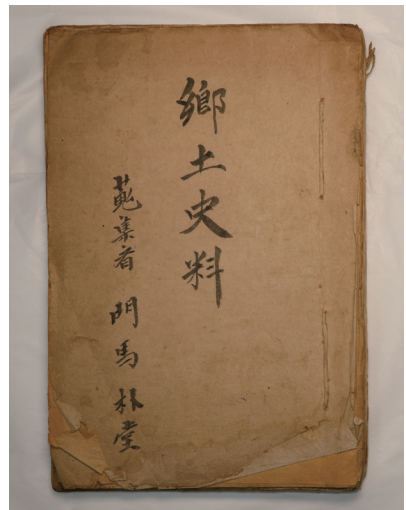 鄉土史料
蒐集者 門馬朴堂